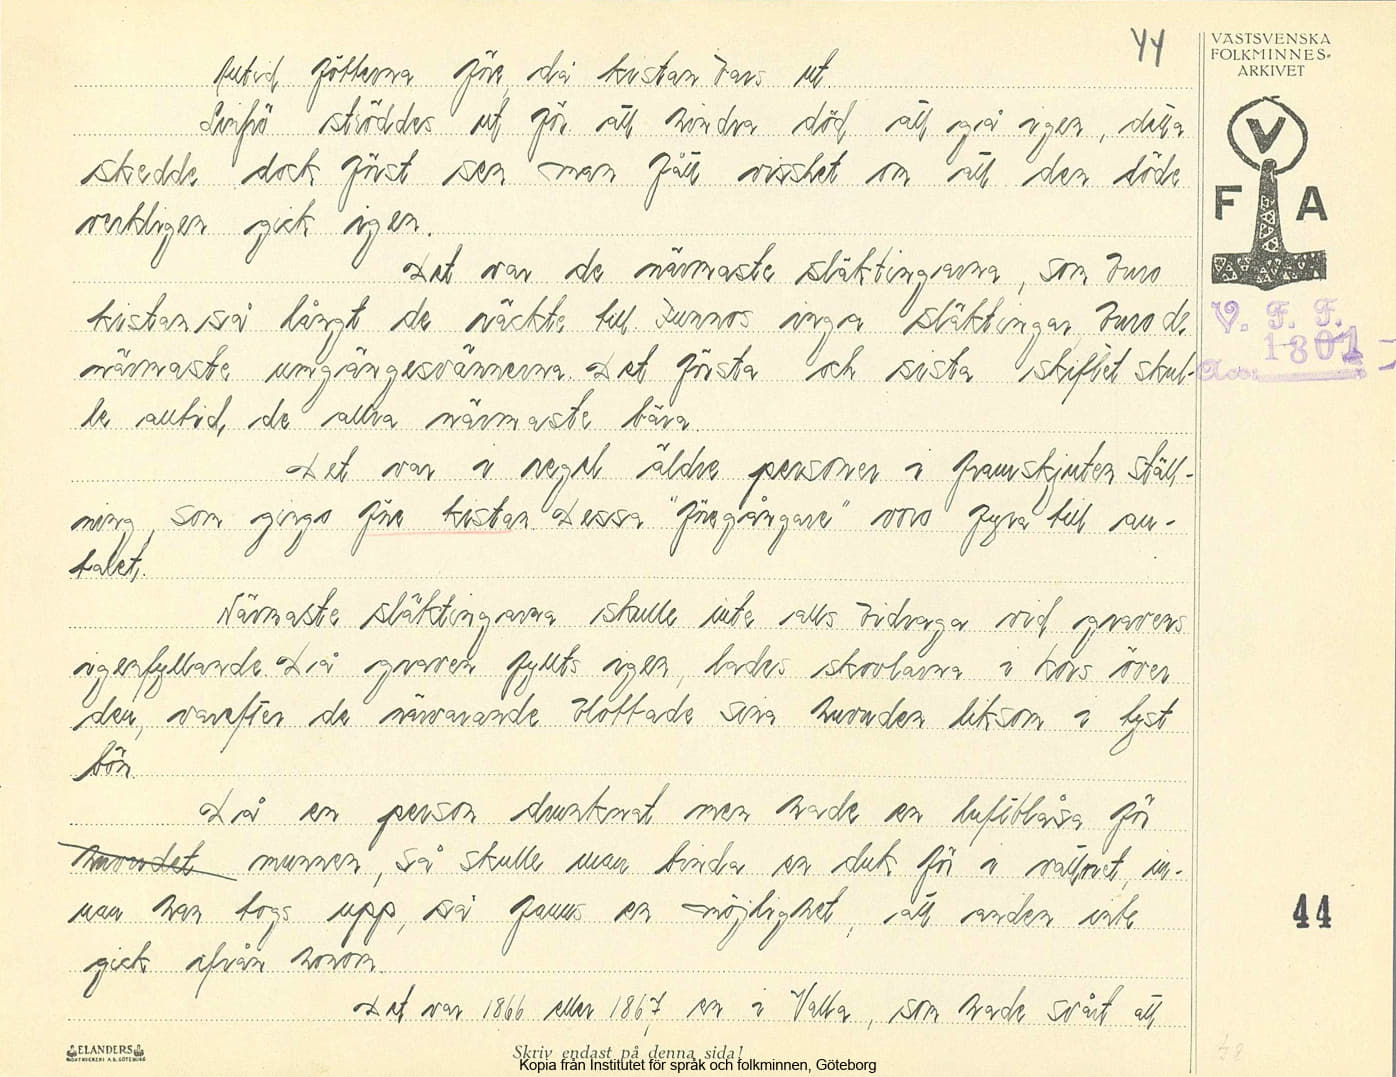 44
VÄSTSVENSKA
FOLKMINNES-
ARKIVET
V
F A
V. F. F.
1801
Acc.
Alltid fötterna före, då kistan bars ut.
Linfrö ströddes ut för att hindra död att gå igen, detta
skedde dock först sen man fått visshet om att den döde
verkligen gick igen.
Det var de närmaste släktingarna, som buro
kistan så långt de räckte till. Funnos inga släktingar, buro de
närmaste umgängesvännerna. Det första och sista skiftet skul-
le alltid de allra närmaste bära.
Det var i regel äldre personer i framskjuten ställ-
ning, som gingo före kistan. Dessa "föregångare" voro fyra till an-
talet.
Närmaste släktingarna skulle inte alls bidraga vid gravens
igenfyllande. Då graven fyllts igen, lades skovlarna i kors över
den, varefter de närvarande blottade sina huvuden liksom i tyst
bön.
Då en person drunknat men hade en luftblåsa för
huvudet munnen, så skulle man binda en duk för i vattnet, in-
nan han togs upp, så fanns en möjlighet, att anden inte
gick ifrån honom.
Det var 1866 eller 1867, en i Valla, som hade svårt att
44
ELANDERS
Skriv endast på denna sida!
Kopia från Institutet för språk och folkminnen, Göteborg